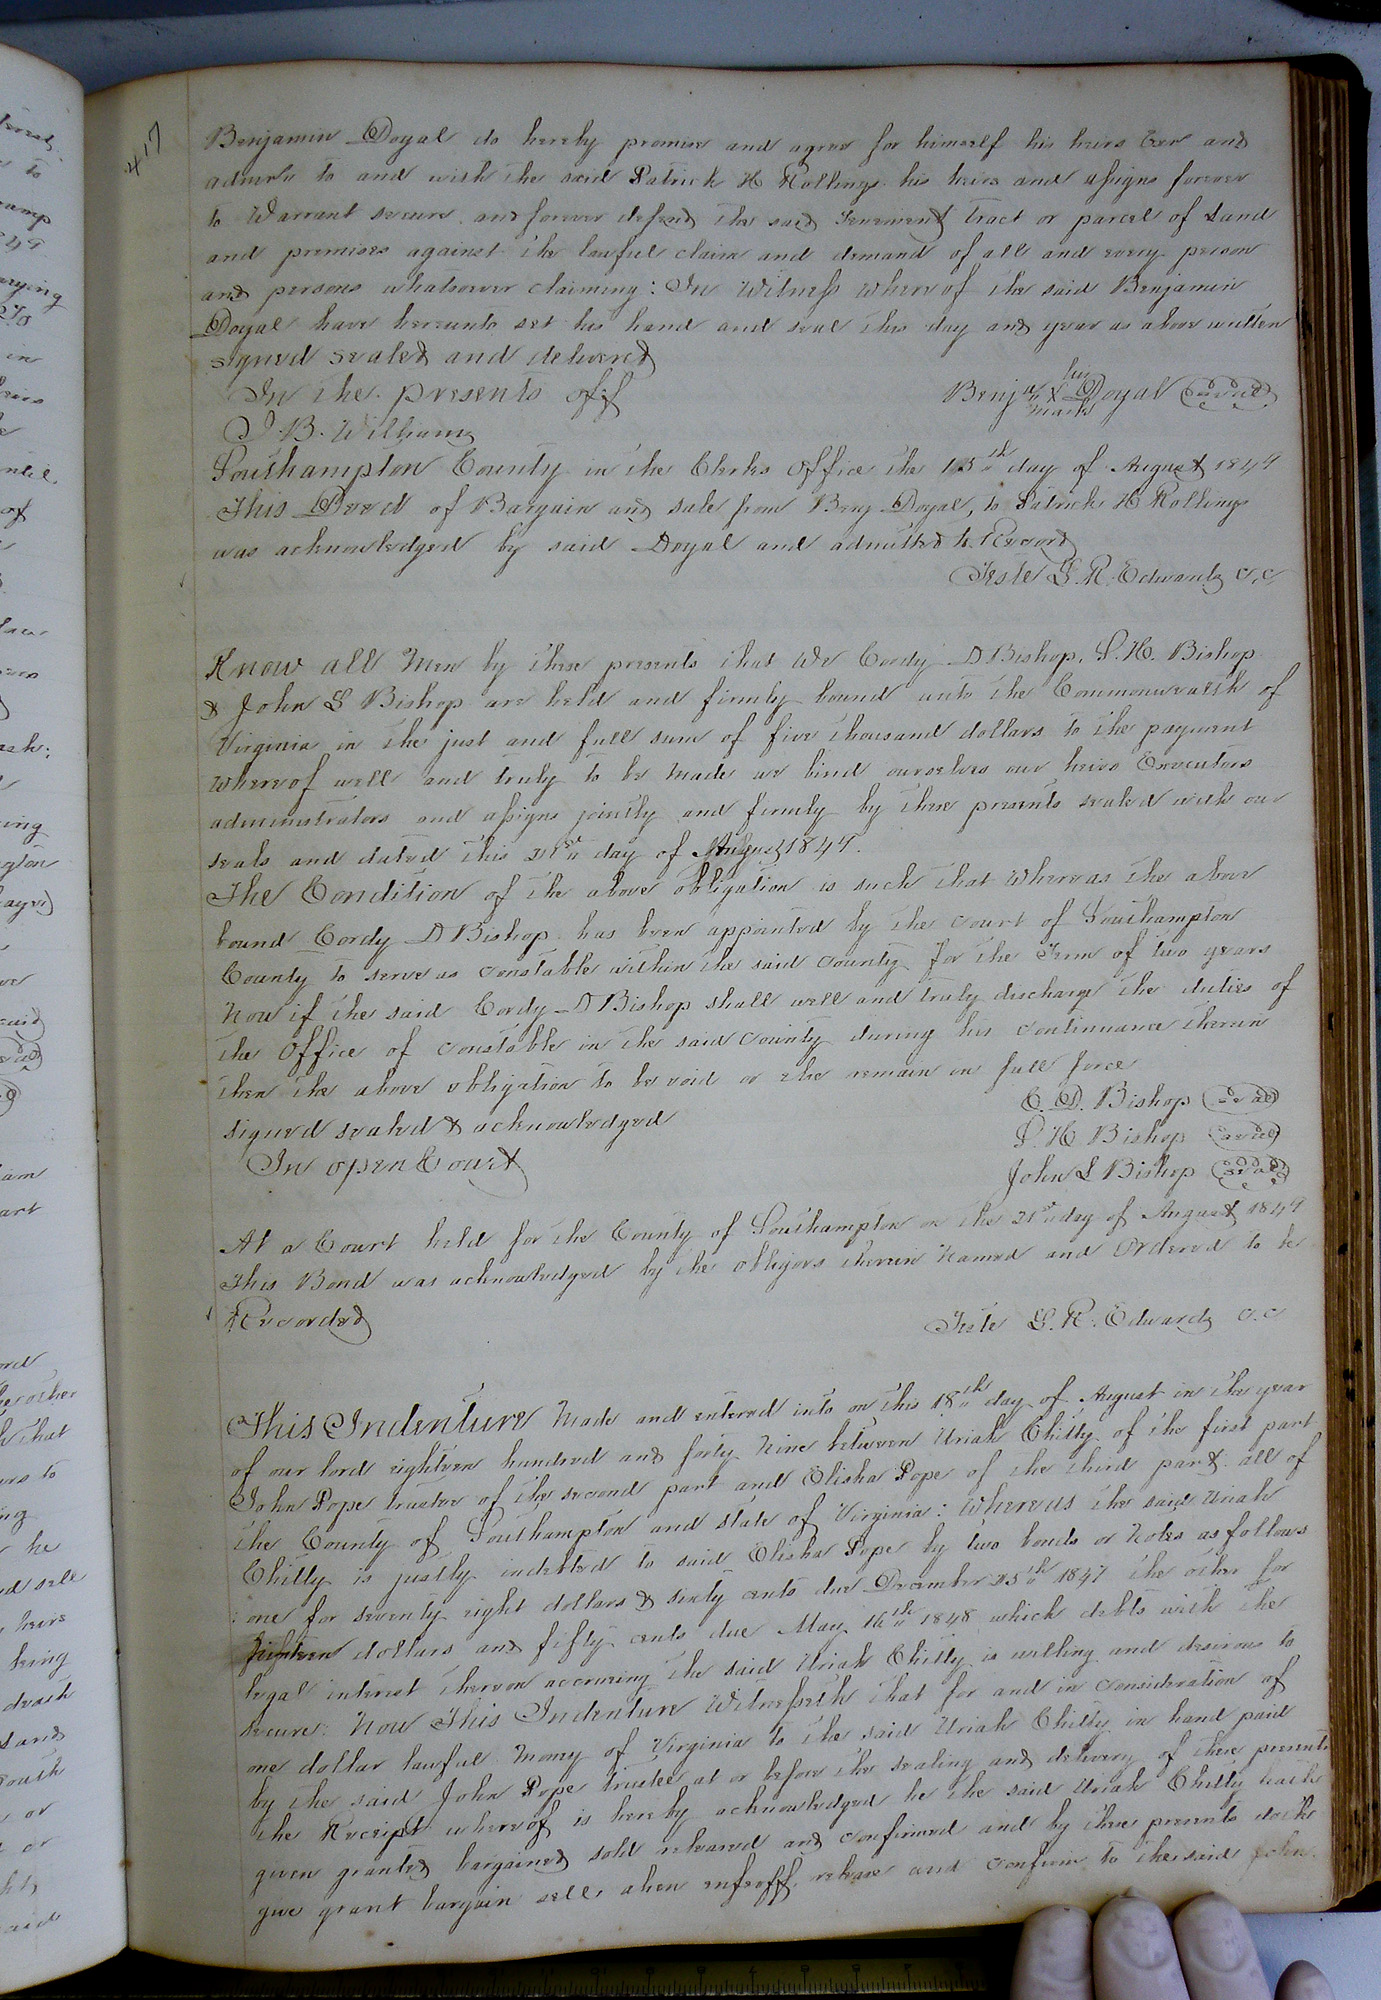 417
Benjamin Doyal do hereby promise and agree for himself his heirs Exr and
admrs to and with the said Patrick H Rollings his heirs and assigns forever
to Warrant secure and forever defend the said Tenement tract or parcel of Land
and premises against the lawful claim and demand of all and every person
and persons whatsoever claiming: In Witness whereof the said Benjamin
Doyal have hereunto set his hand and seal this day and year as above written
signed sealed and delivered
In the presents off
his
Benjn X Doyal (seal)
mark
J. B. Williams
Southampton County in the Clerks Office the 15th day of August 1849
This Deed of Bargain and sale from Benj Doyal, to Patrick H Rollings
was acknowledged by said Doyal and admitted to Record
Teste L. R. Edwards C.C
Know all Men by these presents that We Cordy D Bishop, S. H. Bishop
& John L Bishop are held and firmly bound unto the Commonwealth of
Virginia in the just and full sum of five thousand dollars to the payment
whereof well and truly to be made we bind ourselves our heirs Executors
administrators and assigns jointly and firmly by these presents sealed with our
seals and dated this 21st day of August 1849.
The Condition of the above obligation is such that whereas the above
bound Cordy D Bishop has been appointed by the Court of Southampton
County to serve as constable within the said county for the Term of two years
Now if the said Cordy D Bishop shall well and truly discharge the duties of
the Office of constable in the said county during his continuance therein
then the above obligation to be void or else remain in full force
C. D. Bishop (seal)
signed sealed & acknowledged
S. H Bishop (seal)
In open Court
John L Bishop (seal)
At a Court held for the County of Southampton on the 21st day of August 1849
This Bond was acknowledged by the obligors therein Named and Ordered to be
Recorded
Teste L. R. Edwards C.C
This Indenture Made and entered into on this 18th day of August in the year
of our lord eighteen hundred and forty Nine between Uriah Chitty of the first part
John Pope trustee of the second part and Elisha Pope of the third part all of
the County of Southampton and state of Virginia: Whereas the said Uriah
Chitty is justly indebted to said Elisha Pope by two bonds or Notes as follows
: one for seventy eight dollars & sixty cents due December 25th 1847 the other for
fifteen dollars and fifty cents due May 16th 1848 which debts with the
legal interest thereon accrueing the said Uriah Chitty is willing and desirous to
secure: Now This Indenture Witnesseth that for and in consideration of
one dollar lawful Money of Virginia to the said Uriah Chitty in hand paid
by the said John Pope trustee at or before the sealing and delivery of these presents
the Receipt whereof is hereby acknowledged he the said Uriah Chitty hath
given granted bargained sold released and confirmed and by these presents doth
give grant bargain sell, alien enfeoff, release and confirm to the said John